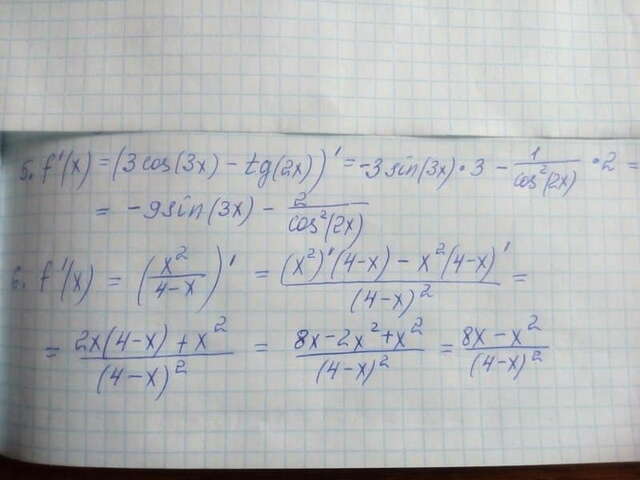 5. f'(x) = (3 cos(3x) - tg(2x))' = -3 sin(3x) • 3 - 1/cos²(2x) • 2 =
= -9 sin(3x) - 2/cos²(2x)
6. f'(x) = (x²/(4-x))' = ((x²)'(4-x) - x²(4-x)')/(4-x)² =
= (2x(4-x) + x²)/(4-x)² = (8x - 2x² + x²)/(4-x)² = (8x - x²)/(4-x)²